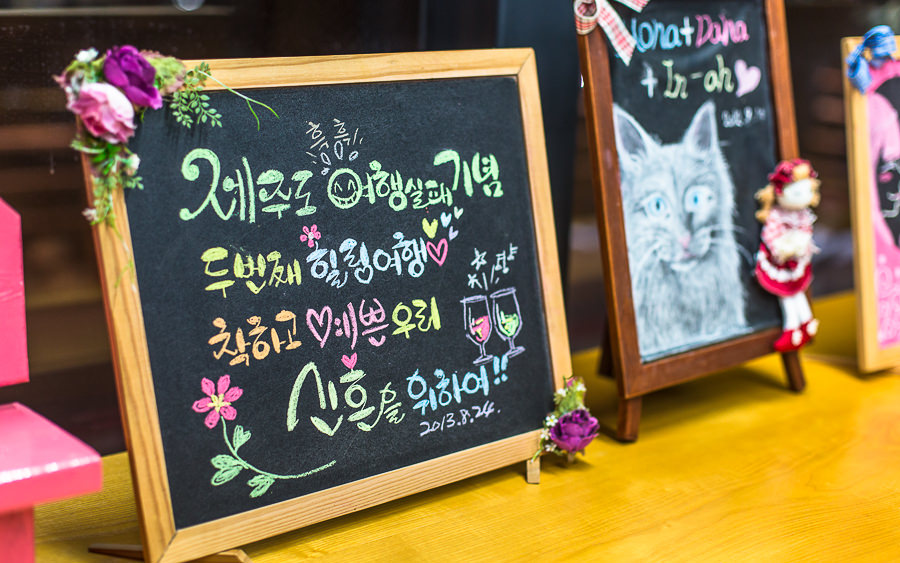 흠흠휘
제주도 여행실패기념
두번째 힐링여행
착하고 예쁜 우리
치얼샷
신혼을 위하여!!
2013.8.24.
Jona+Daina
+ In-ah